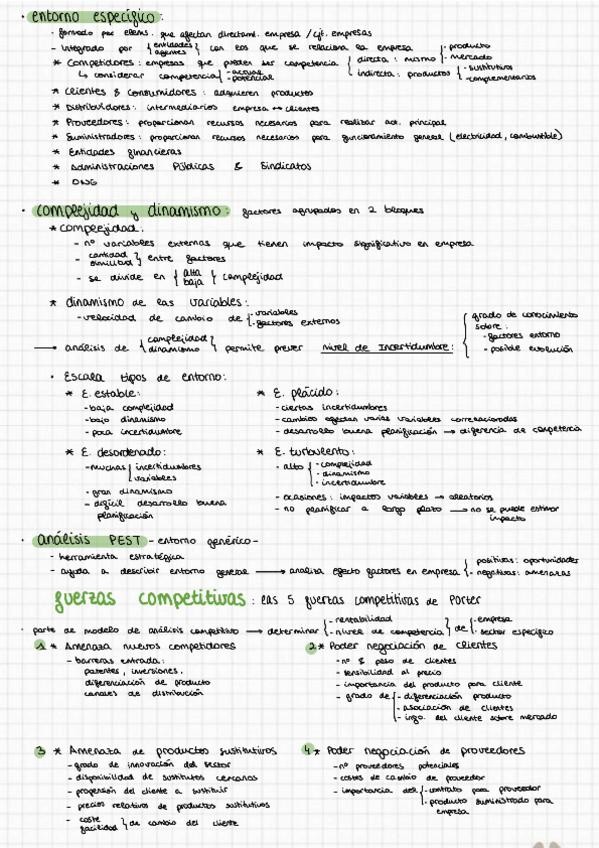 · entorno específico:
· formado por elems. que afectan directam. empresa / cjt. empresas
- integrado por { entidades agentes } con los que se relaciona la empresa
* Competidores: empresas que pueden ser competencia { directa: mismo { - producto - mercado
indirecta: productos { - sustitutivos - complementarios
↳ considerar competencia { - actual - potencial
* Clientes & consumidores: adquieren productos
* Distribuidores: intermediarios empresa ↔ clientes
* Proveedores: proporcionan recursos necesarios para realizar act. principal
* Suministradores: proporcionan recursos necesarios para funcionamiento general (electricidad, combustible)
* Entidades financieras
* Administraciones Públicas & Sindicatos
* ONG
· complejidad y dinamismo: factores agrupados en 2 bloques
* complejidad:
- nº variables externas que tienen impacto significativo en empresa
- cantidad similitud } entre factores
- se divide en { alta baja } complejidad
* dinamismo de las variables:
- velocidad de cambio de { - variables - factores externos
→ análisis de { complejidad dinamismo } permite prever nivel de incertidumbre: { grado de conocimiento sobre: - factores entorno - posible evolución
· Escala tipos de entorno:
* E. estable:
- baja complejidad
- bajo dinamismo
- poca incertidumbre
* E. plácido:
- ciertas incertidumbres
- cambios afectan varias variables correlacionadas
- desarrollo buena planificación → diferencia de competencia
* E. desordenado:
- muchas { incertidumbres variables
- gran dinamismo
- difícil desarrollo buena
planificación
* E. turbulento:
- alto { - complejidad - dinamismo - incertidumbre
- ocasiones: impactos variables → aleatorios
- no planificar a largo plazo → no se puede estimar
impacto
· análisis PEST - entorno genérico -
- herramienta estratégica
- ayuda a describir entorno general → analiza efecto factores en empresa { positivas: oportunidades - negativas: amenazas
fuerzas competitivas: las 5 fuerzas competitivas de Porter
· parte de modelo de análisis competitivo → determinar { - rentabilidad - nivel de competencia } de { - empresa - sector específico
1 * Amenaza nuevos competidores
- barreras entrada:
patentes, inversiones,
diferenciación de producto
canales de distribución
2 * Poder negociación de clientes
- nº & peso de clientes
- sensibilidad al precio
- importancia del producto para cliente
- grado de { - diferenciación producto
- asociación de clientes
- info. del cliente sobre mercado
3 * Amenaza de productos sustitutivos
- grado de innovación del sector
- disponibilidad de sustitutos cercanos
- propensión del cliente a sustituir
- precios relativos de productos sustitutivos
- coste facilidad } de cambio del cliente
4 * Poder negociación de proveedores
- nº proveedores potenciales
- costes de cambio de proveedor
- importancia del { - contrato para proveedor
- producto suministrado para
empresa